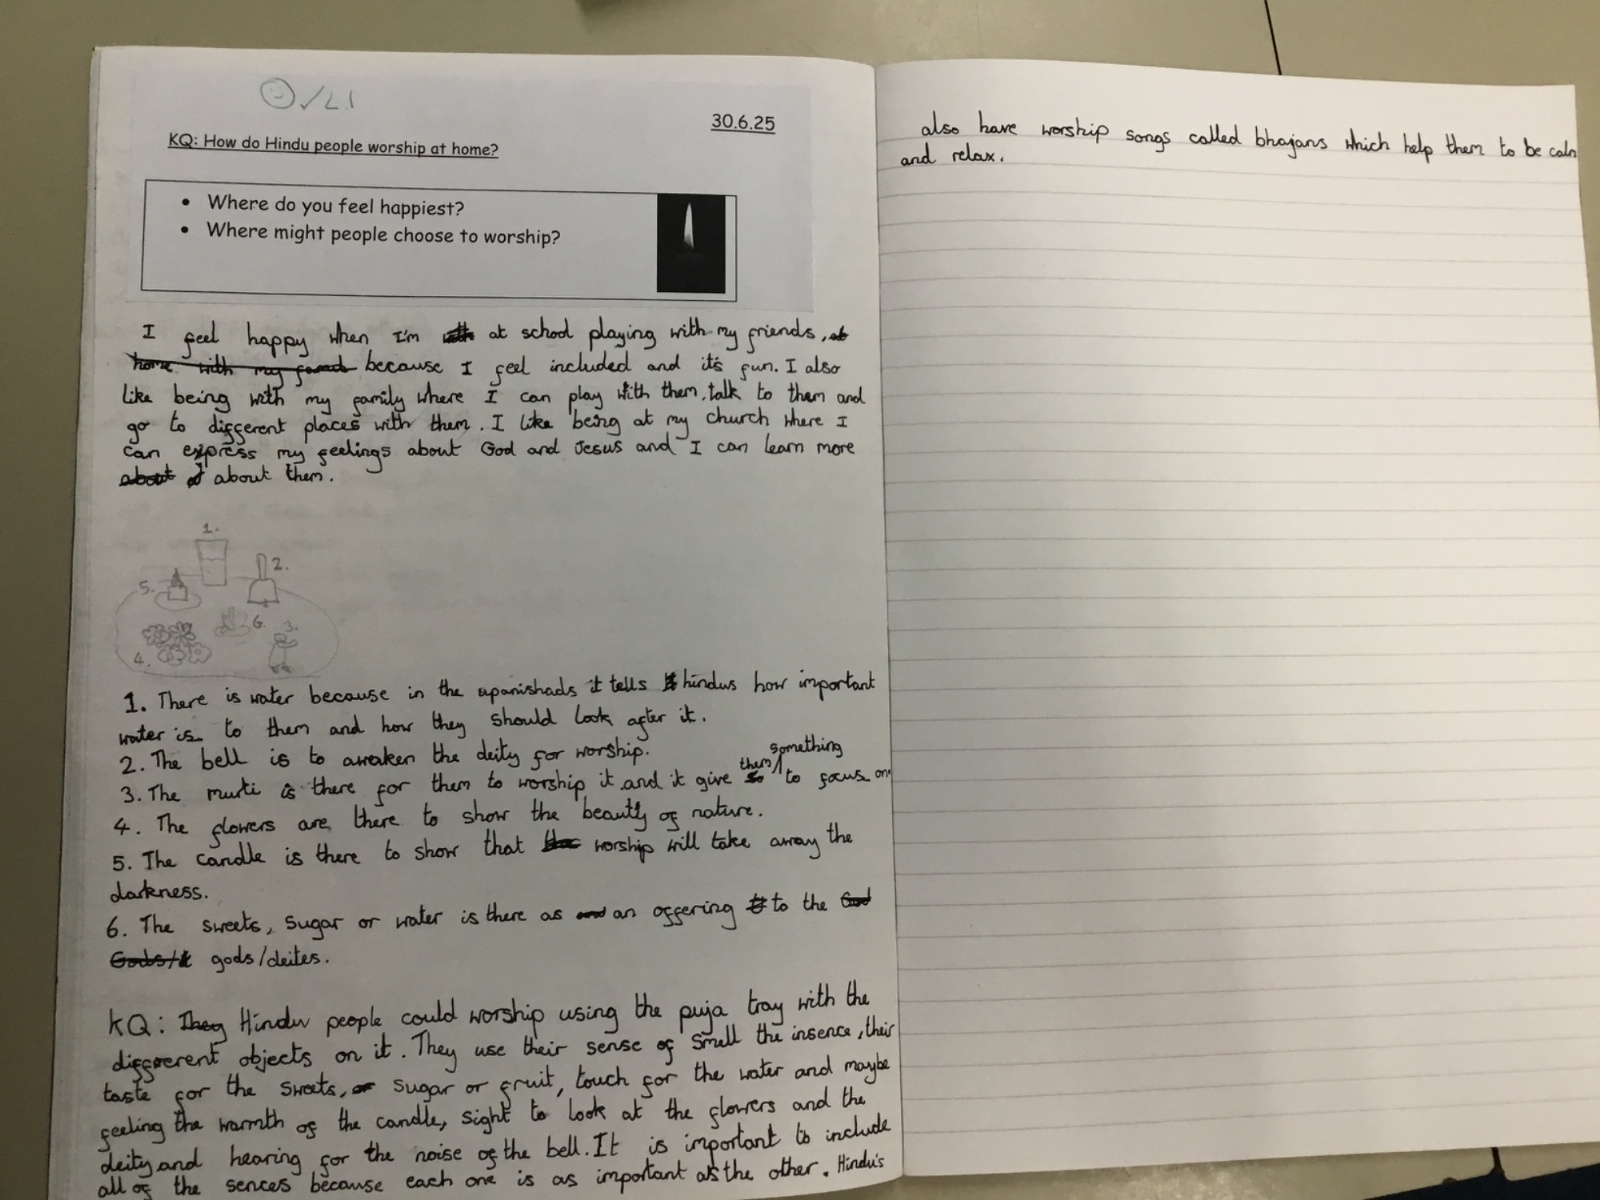 ✓ L1
30.6.25
KQ: How do Hindu people worship at home?
• Where do you feel happiest?
• Where might people choose to worship?
I feel happy when I'm at school playing with my friends,
home with my because I feel included and it's fun. I also
like being with my family where I can play with them, talk to them and
go to different places with them. I like being at my church where I
can express my feelings about God and Jesus and I can learn more
about about them.
1.
2.
5.
6.
3.
4.
1. There is water because in the upanishads it tells hindus how important
water is to them and how they should look after it.
2. The bell is to awaken the deity for worship.
them something
3. The murti is there for them to worship it and it give to focus on
4. The flowers are there to show the beauty of nature.
5. The candle is there to show that worship will take away the
darkness.
6. The sweets, sugar or water is there as an offering to the God
Gods/ gods/deites.
KQ: They Hindu people could worship using the puja tray with the
different objects on it. They use their sense of smell the insence, their
taste for the sweets, or sugar or fruit, touch for the water and maybe
feeling the warmth of the candle, sight to look at the flowers and the
deity and hearing for the noise of the bell. It is important to include
all of the sences because each one is as important as the other. Hindu's
also have worship songs called bhajans which help them to be calm
and relax.